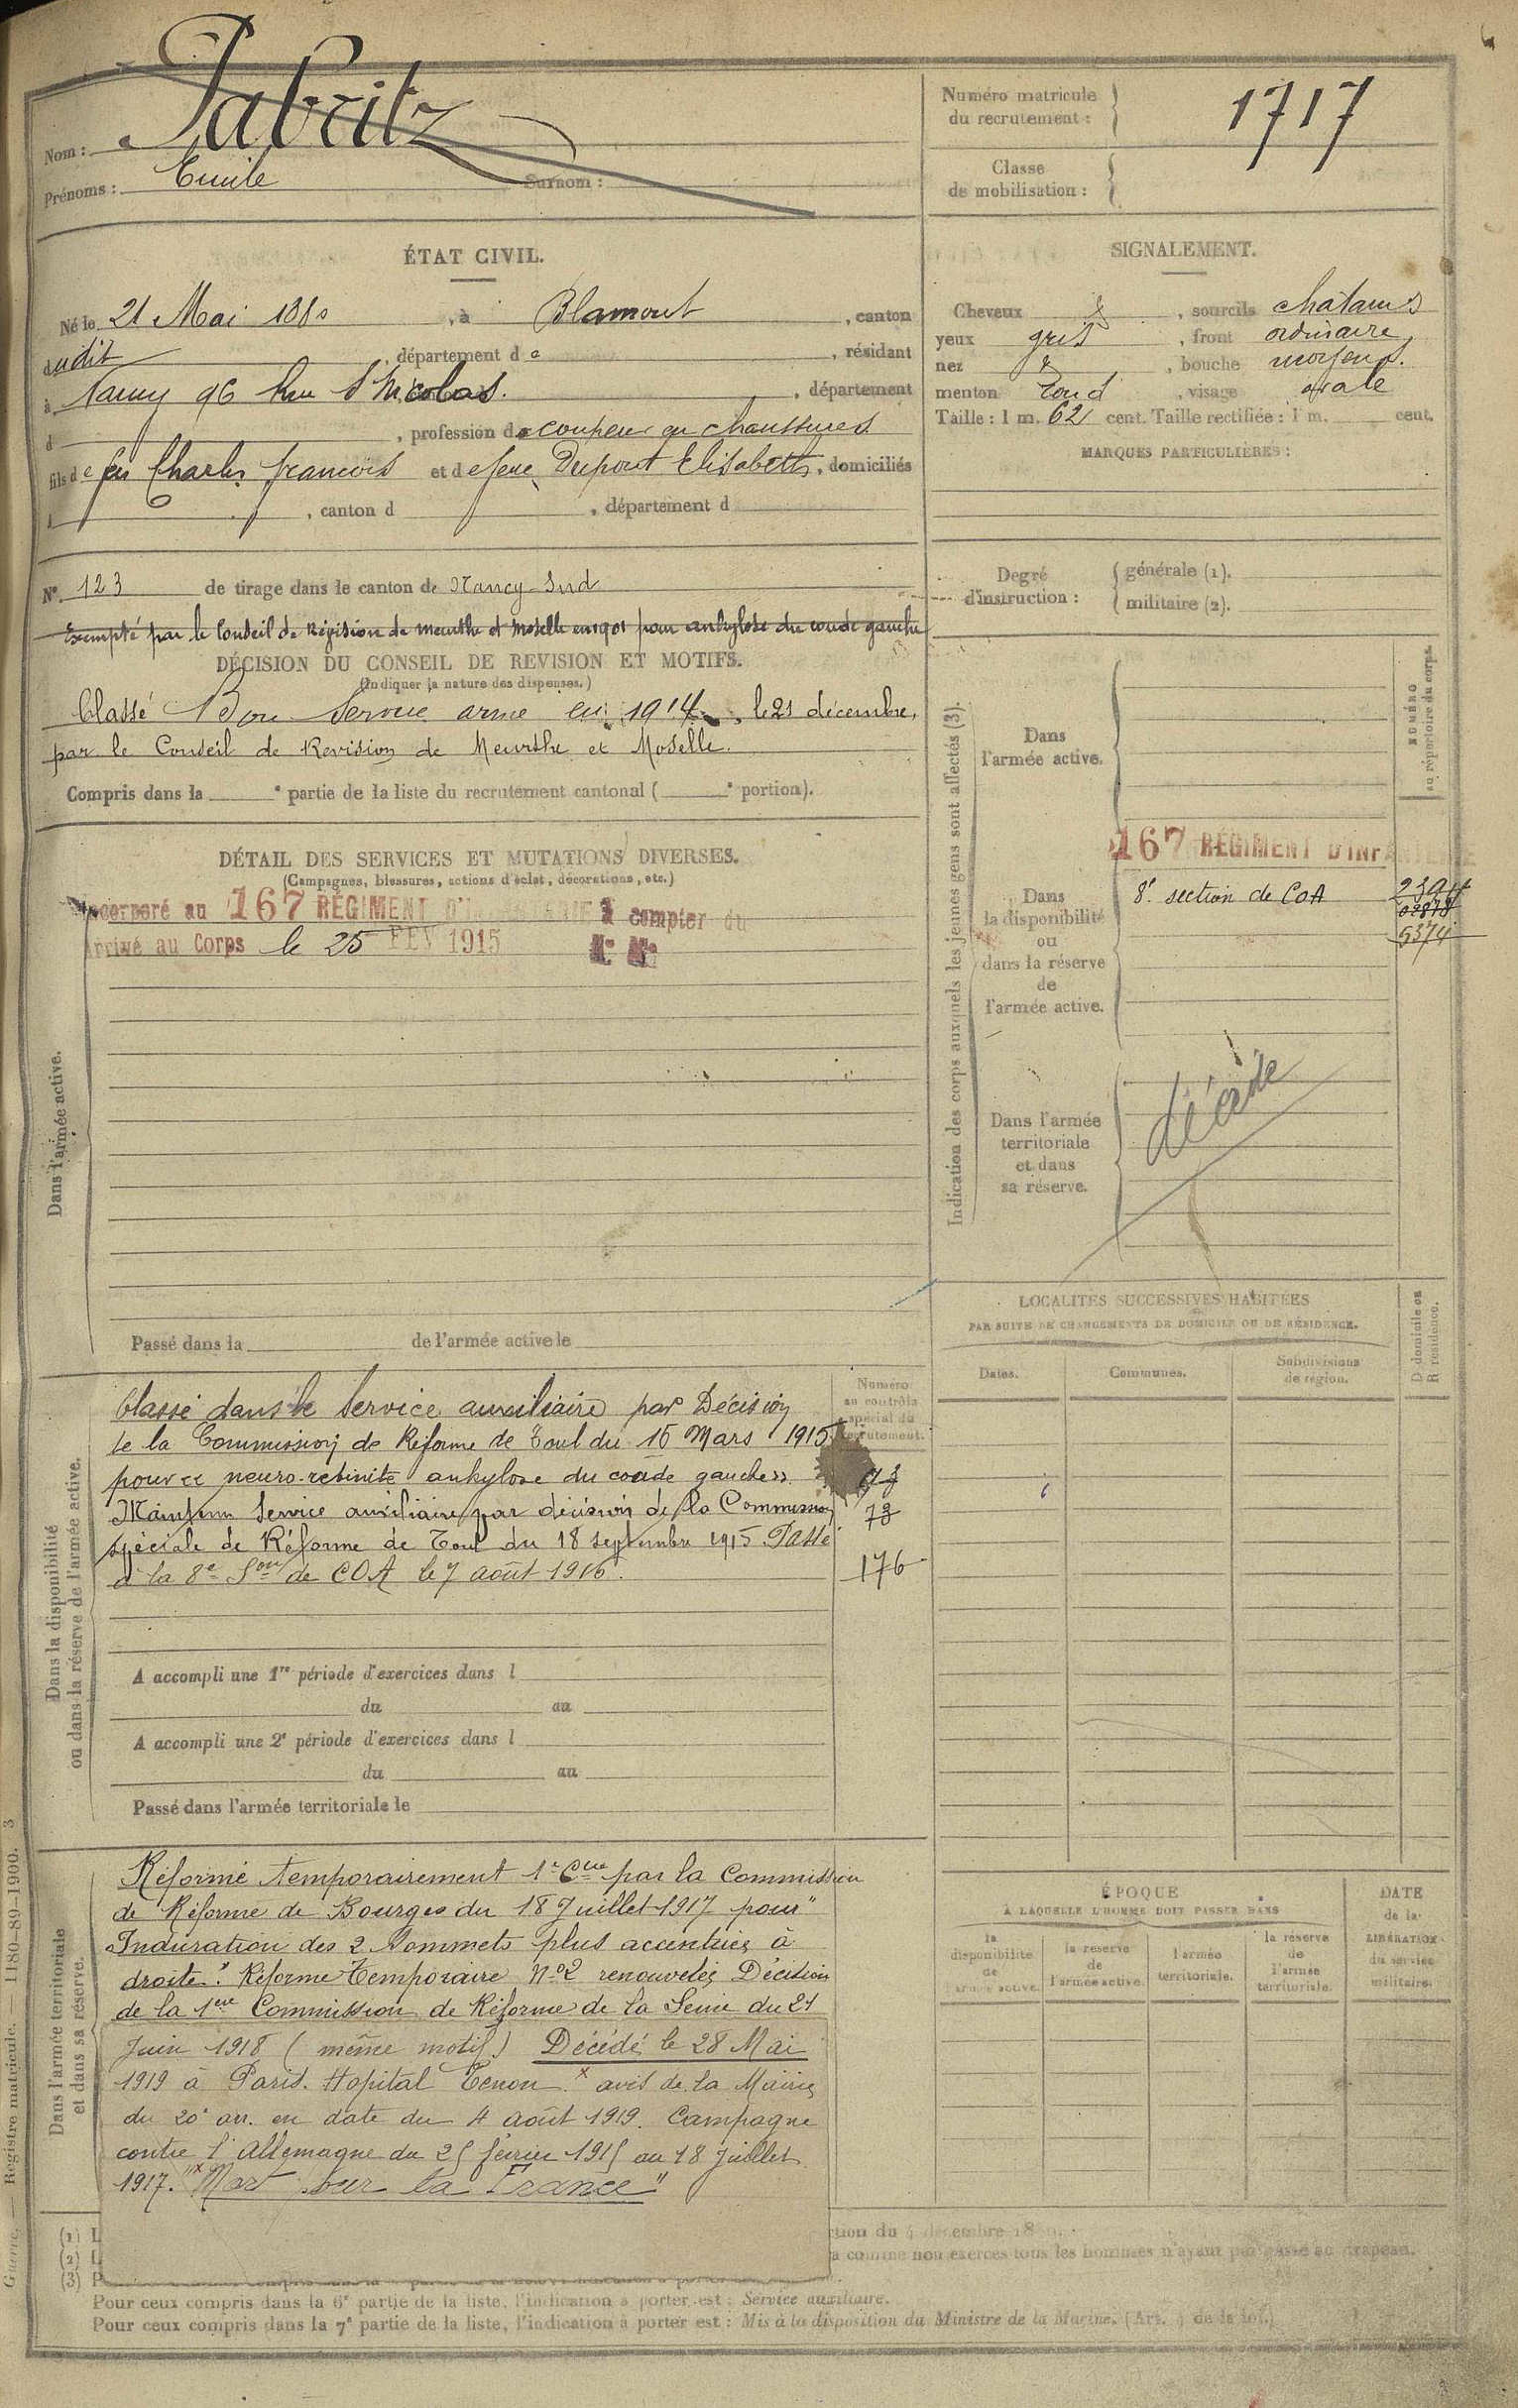 Nom : Fabritz
Prénoms : Emile Surnom :
Numéro matricule du recrutement : 1717
Classe de mobilisation :
ÉTAT CIVIL.
Né le 21 Mai 1880, à Blamont, canton
dudit, département de, résidant
à Nancy 96 Rue St Nicolas., département
d, profession de coupeur en chaussures
fils de feu Charles François et de feue Dupont Elisabeth, domiciliés
, canton d, département d
SIGNALEMENT.
Cheveux &, sourcils châtains
yeux gris, front ordinaire
nez &, bouche moyenne
menton rond, visage ovale
Taille : 1 m. 62 cent. Taille rectifiée : 1 m. cent.
MARQUES PARTICULIÈRES :
N° 123 de tirage dans le canton de Nancy Sud
Exempté par le Conseil de Révision de Meurthe et Moselle en 1901 pour ankylose du coude gauche
DÉCISION DU CONSEIL DE REVISION ET MOTIFS.
(Indiquer la nature des dispenses.)
Classé Bon Service armé en 1914, le 21 décembre,
par le Conseil de Revision de Meurthe et Moselle.
Compris dans la e partie de la liste du recrutement cantonal ( e portion).
Degré d'instruction : générale (1).
militaire (2).
DÉTAIL DES SERVICES ET MUTATIONS DIVERSES.
(Campagnes, blessures, actions d'éclat, décorations, etc.)
Incorporé au 167 RÉGIMENT D'INFANTERIE à compter du
Arrivé au Corps le 25 FEV 1915
Dans l'armée active.
Passé dans la de l'armée active le
Indication des corps auxquels les jeunes gens sont affectés (3).
NUMÉRO au répertoire du corps.
Dans l'armée active.
167 RÉGIMENT D'INFANTERIE
Dans la disponibilité ou dans la réserve de l'armée active.
8e section de COA
02878
5374
Dans l'armée territoriale et dans sa réserve.
décédé
LOCALITÉS SUCCESSIVES HABITÉES
PAR SUITE DE CHANGEMENTS DE DOMICILE OU DE RÉSIDENCE.
Dates. Communes. Subdivisions de région. D domicile ou R résidence.
Dans la disponibilité ou dans la réserve de l'armée active.
Numéro au contrôle spécial du recrutement.
Classé dans le Service auxiliaire par Décision
de la Commission de Réforme de Toul du 16 Mars 1915
pour « neuro-rétinite ankylose du coude gauche ».
Maintenu Service auxiliaire par décision de la Commission
73
spéciale de Réforme de Toul du 18 septembre 1915. Passé
à la 8e Son de COA le 7 août 1916.
176
A accompli une 1re période d'exercices dans l
du au
A accompli une 2e période d'exercices dans l
du au
Passé dans l'armée territoriale le
Dans l'armée territoriale et dans sa réserve.
Réformé temporairement 1e Cie par la Commission
de Réforme de Bourges du 18 Juillet 1917 pour "
Induration des 2 sommets plus accentuée à
droite". Réforme Temporaire N° 2 renouvelée Décision
de la 1ere Commission de Réforme de la Seine du 21
Juin 1918 (même motif) Décédé le 28 Mai
1919 à Paris. Hopital Tenon. x avis de la Mairie
du 20e arr. en date du 4 août 1919. Campagne
contre l'Allemagne du 25 février 1915 au 18 juillet
1917. x "Mort pour la France"
ÉPOQUE
À LAQUELLE L'HOMME DOIT PASSER DANS
la disponibilité de l'armée active. la réserve de l'armée active. l'armée territoriale. la réserve de l'armée territoriale.
DATE de la LIBÉRATION du service militaire.
(1) L
(2) L
(3) P
Pour ceux compris dans la 6e partie de la liste, l'indication à porter est : Service auxiliaire.
Pour ceux compris dans la 7e partie de la liste, l'indication à porter est : Mis à la disposition du Ministre de la Marine. (Art. 4 de la loi.)
Guerre. — Registre matricule. — 1180-89-1900. 3